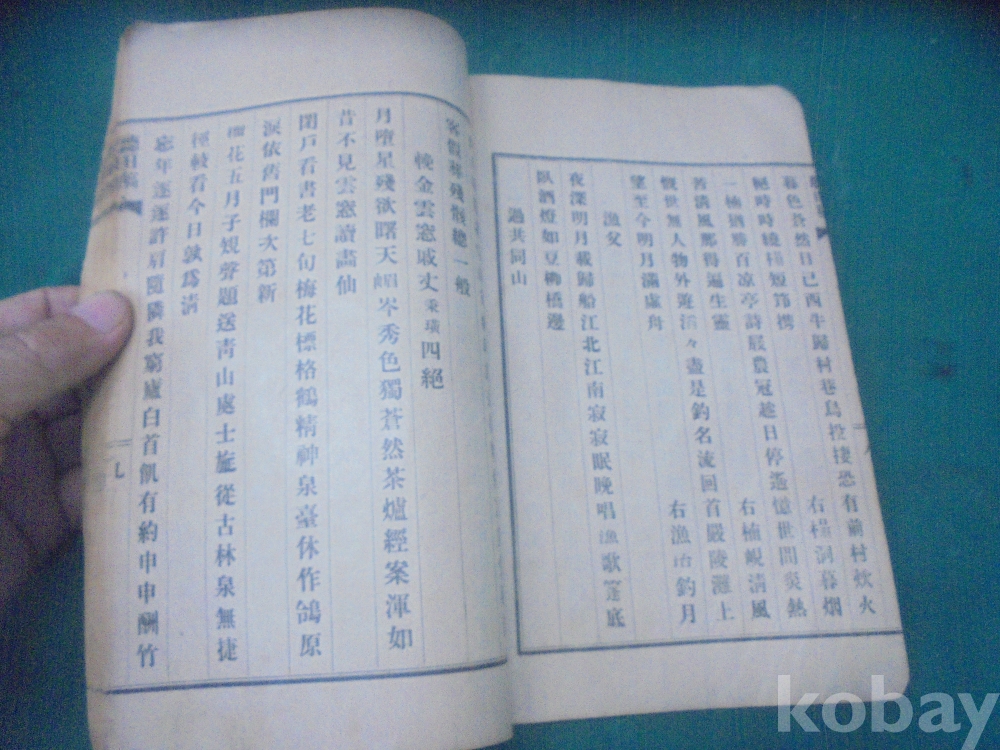 有前村炊火
暮色蒼然日已西牛歸村巷鳥投棲恐
右 洞暮烟
時時 短筇携
一楠猶勝百凉亭詩 農冠 日停 憶世間炎熱
右楠峴淸風
若淸風那得遍生靈
慨世無人物外遊滔々盡是釣名流回首嚴陵灘上
右漁 釣月
望至今明月滿虛舟
漁父
夜深明月載歸船江北江南寂寂眠晚唱漁歌篷底
臥酒燈如豆柳橋邊
過共同山
殘 總一般
輓金雲窓戚丈秉璜四絕
月墮星殘欲曙天 岑秀色獨蒼然茶爐經案渾如
昔不見雲窓讀畵仙
閉戶看書老七旬梅花標格鶴精神泉臺休作鴒原
淚依舊門欄次第新
榴花五月子規聲題送靑山處士旌從古林泉無捷
徑較看今日孰爲淸
忘年逐逐許肩隨隣我窮廬白首飢有約申申酬竹
kobay